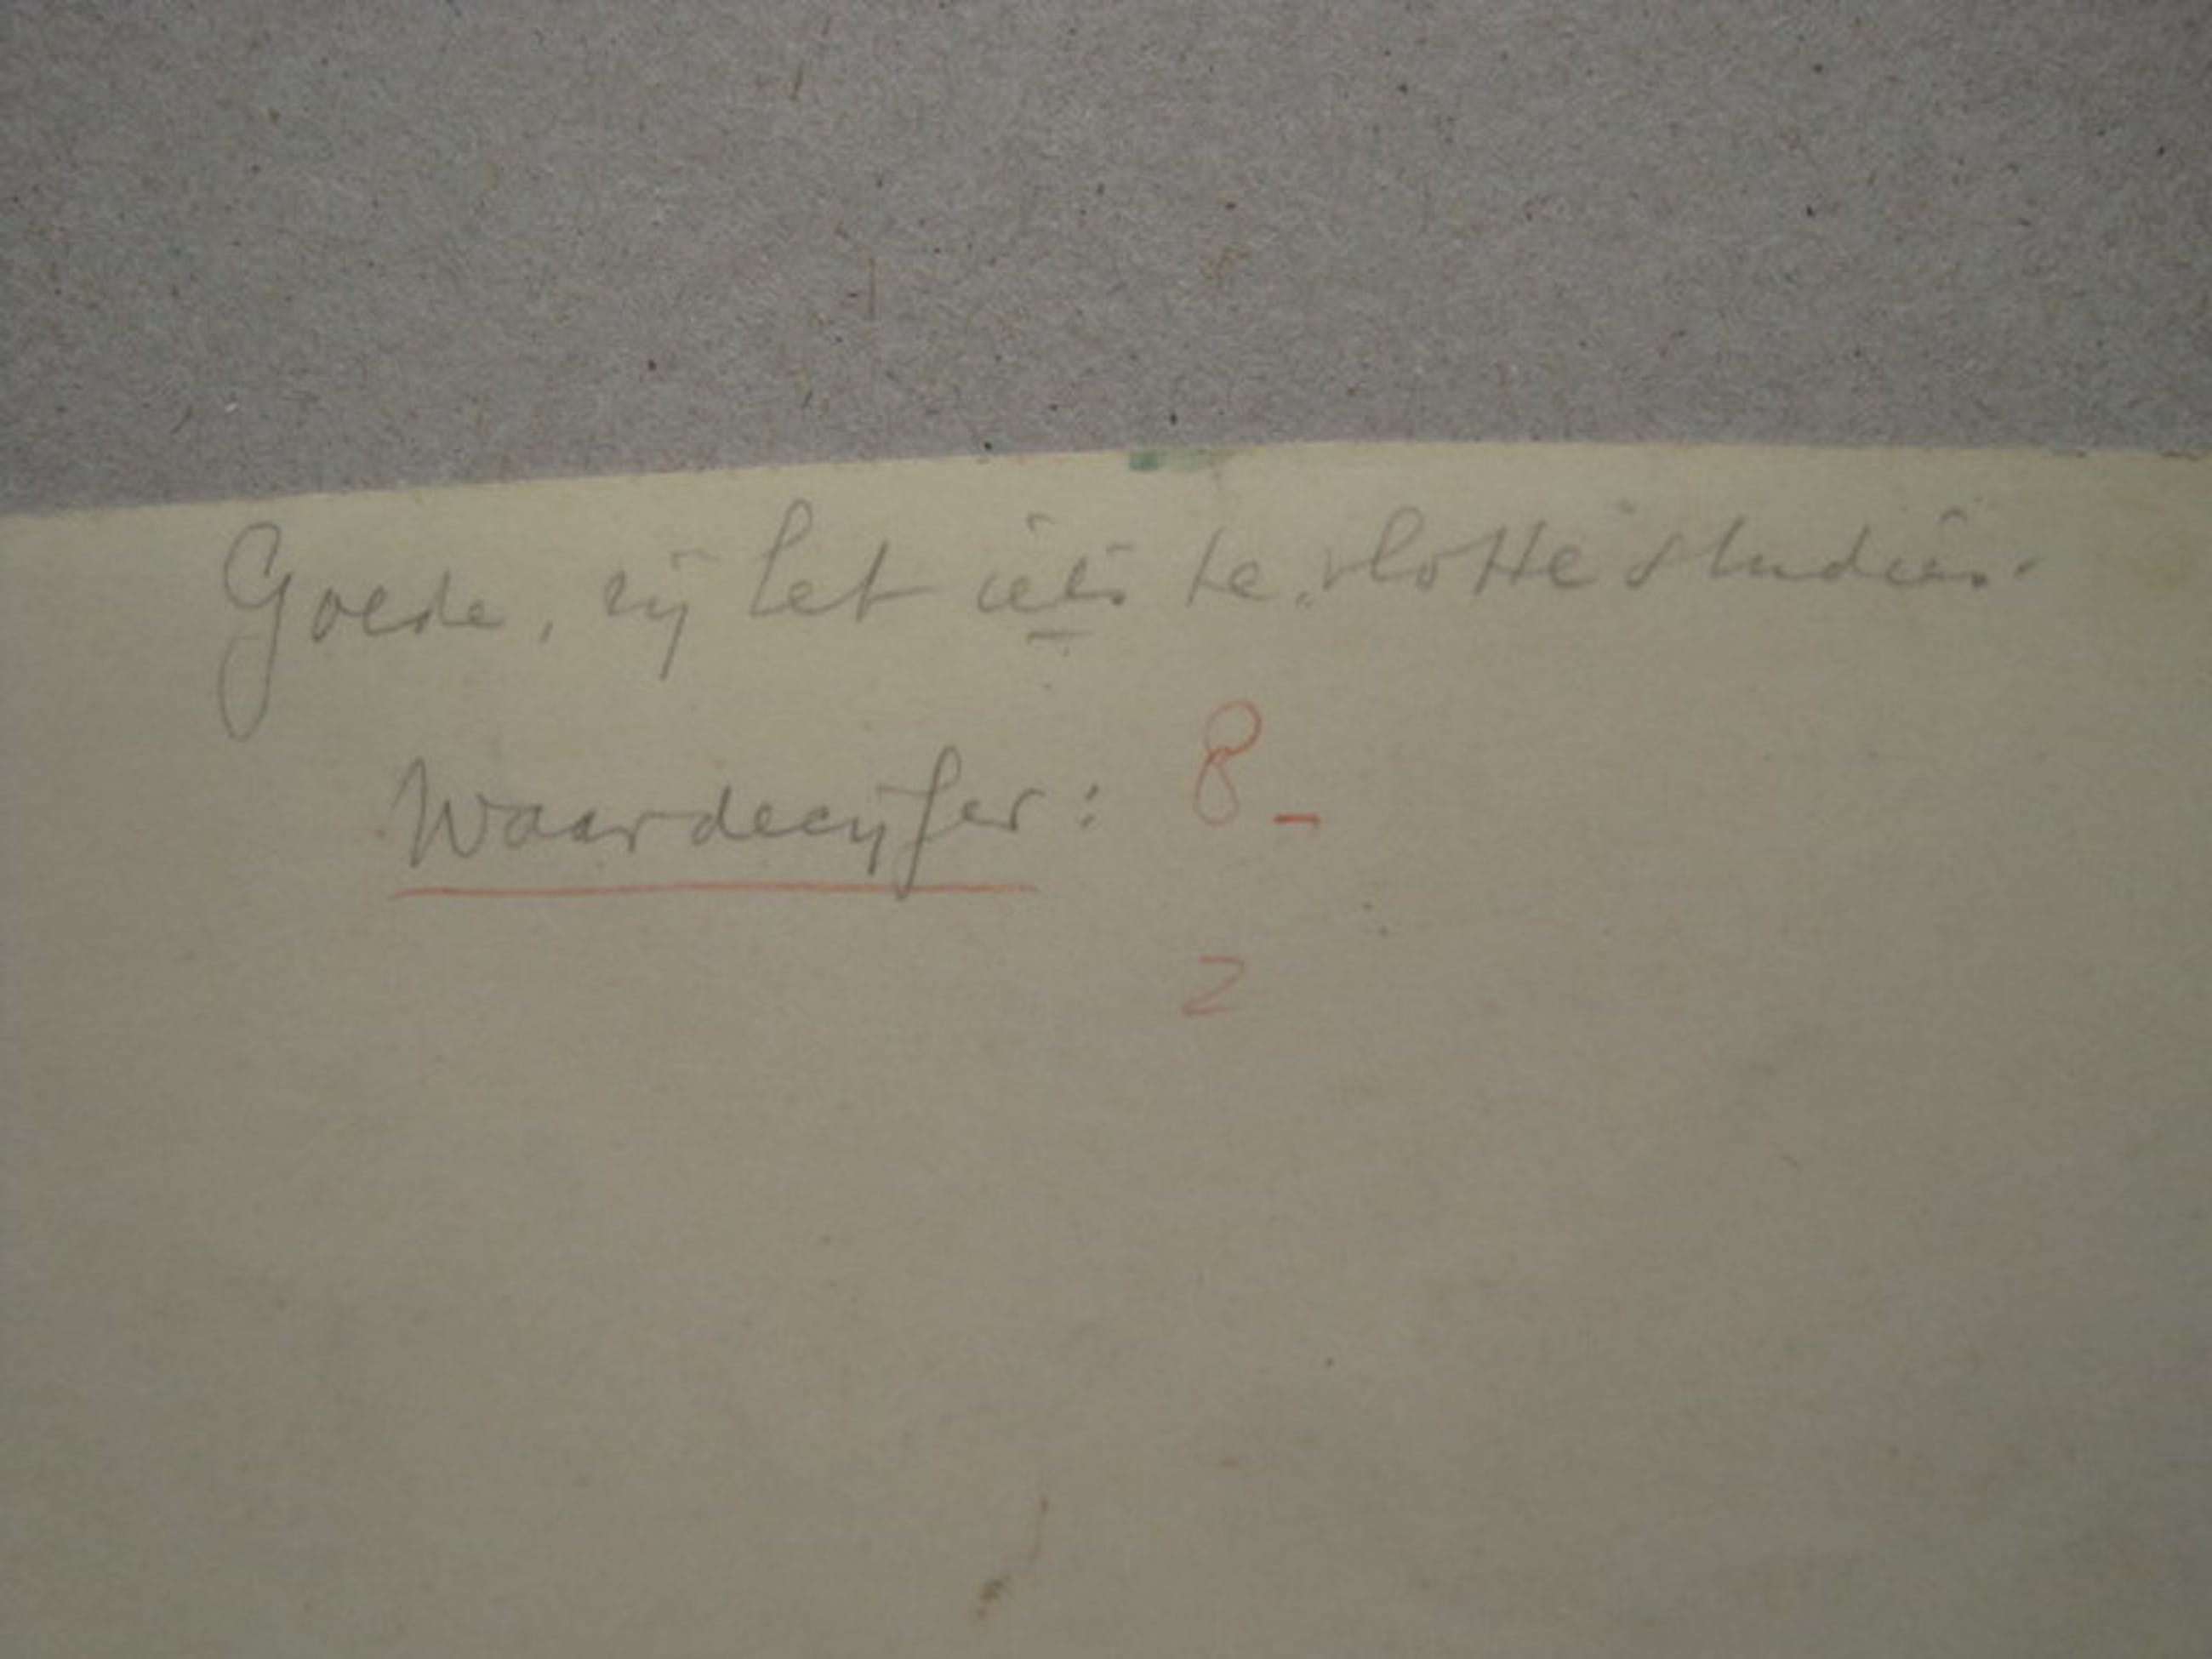 Goede, zij het iets te „vlotte" studies.
Waardecijfer: 8-
2